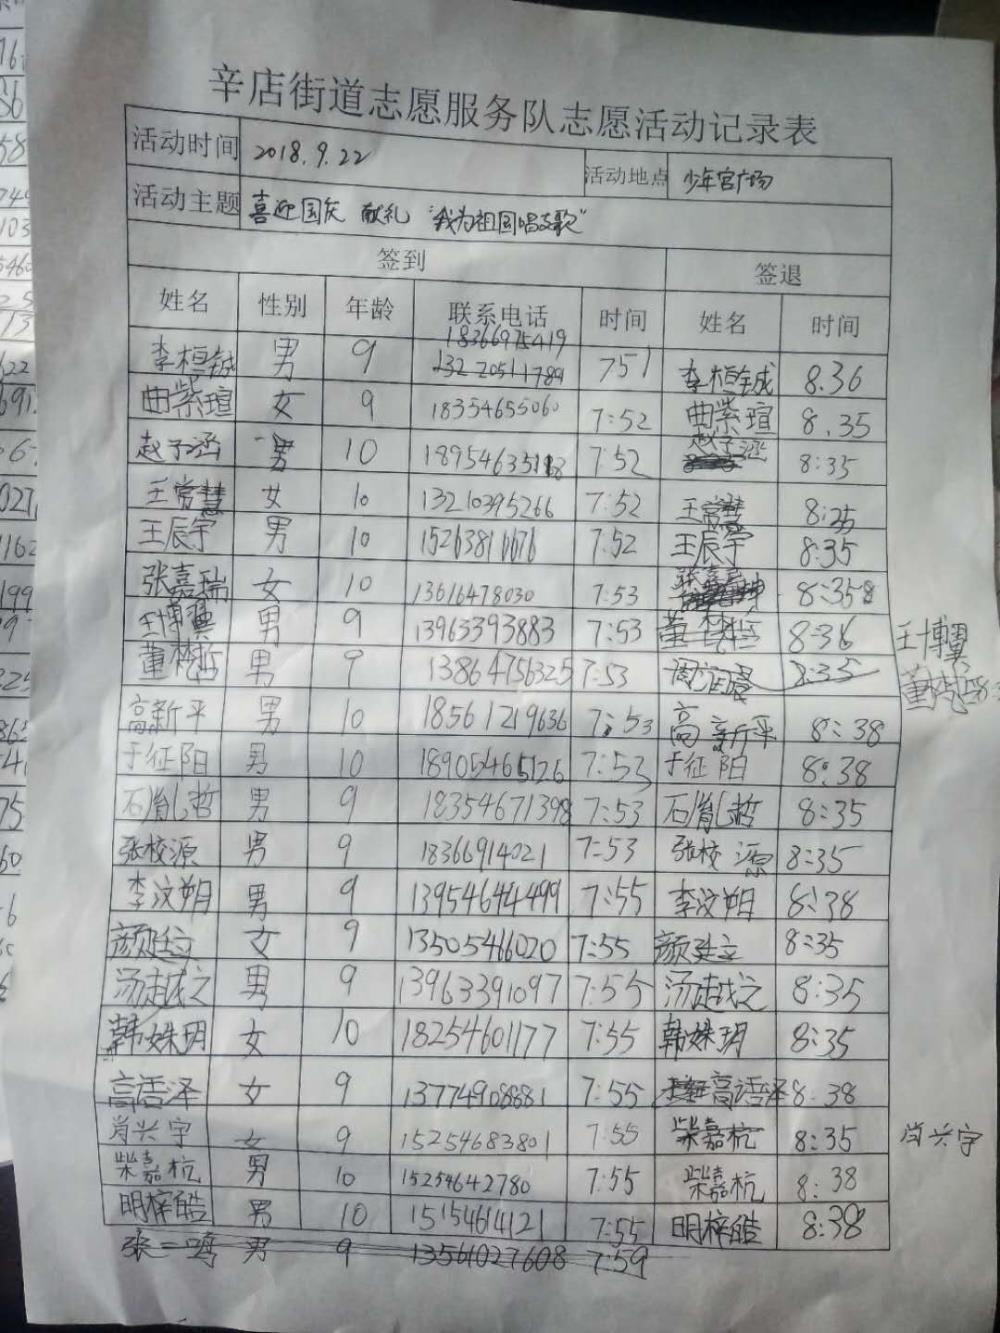 辛店街道志愿服务队志愿活动记录表
活动时间 2018.9.22 活动地点 少年宫广场
活动主题 喜迎国庆 献礼 "我为祖国唱支歌"
签到 签退
姓名 性别 年龄 联系电话 时间 姓名 时间
18366975419
李桓铖 男 9 13220511789 751 李桓铖 8.36
曲紫瑄 女 9 18354655060 7:52 曲紫瑄 8.35
赵子涵 男 10 7:52 赵子涵 8:35
王常慧 女 10 13210395266 7:52 王常慧 8:35
王辰宇 男 10 15263811676 7:52 王辰宇 8:35
张嘉瑞 女 10 13616478030 7:53 8:35
王博翼 男 9 13963393883 7:53 8:36 王博翼
董 哲 男 9 13864756325 7:53 8:35 董
高新平 男 10 18561219636 7:53 高新平 8:38
于征阳 男 10 18905465126 7:53 于征阳 8:38
石胤哲 男 9 18354671398 7:53 石胤哲 8:35
张校源 男 9 18366914021 7:53 张校源 8:35
李汶朔 男 9 13954644499 7:55 李汶朔 8:38
颜廷立 女 9 13505466020 7:55 颜廷立 8:35
汤越之 男 9 13963391097 7:55 汤越之 8:35
韩姝玥 女 10 18254601177 7:55 韩姝玥 8:35
高语泽 女 9 13774908881 7:55 高语泽 8:38
肖兴宇 女 9 15254683801 7:55 柴嘉杭 8:35 肖兴宇
柴嘉杭 男 10 15254642780 7:55 柴嘉杭 8:38
明梓皓 男 10 15154614121 7:55 明梓皓 8:38
张一鸣 男 9 13561027608 7:59